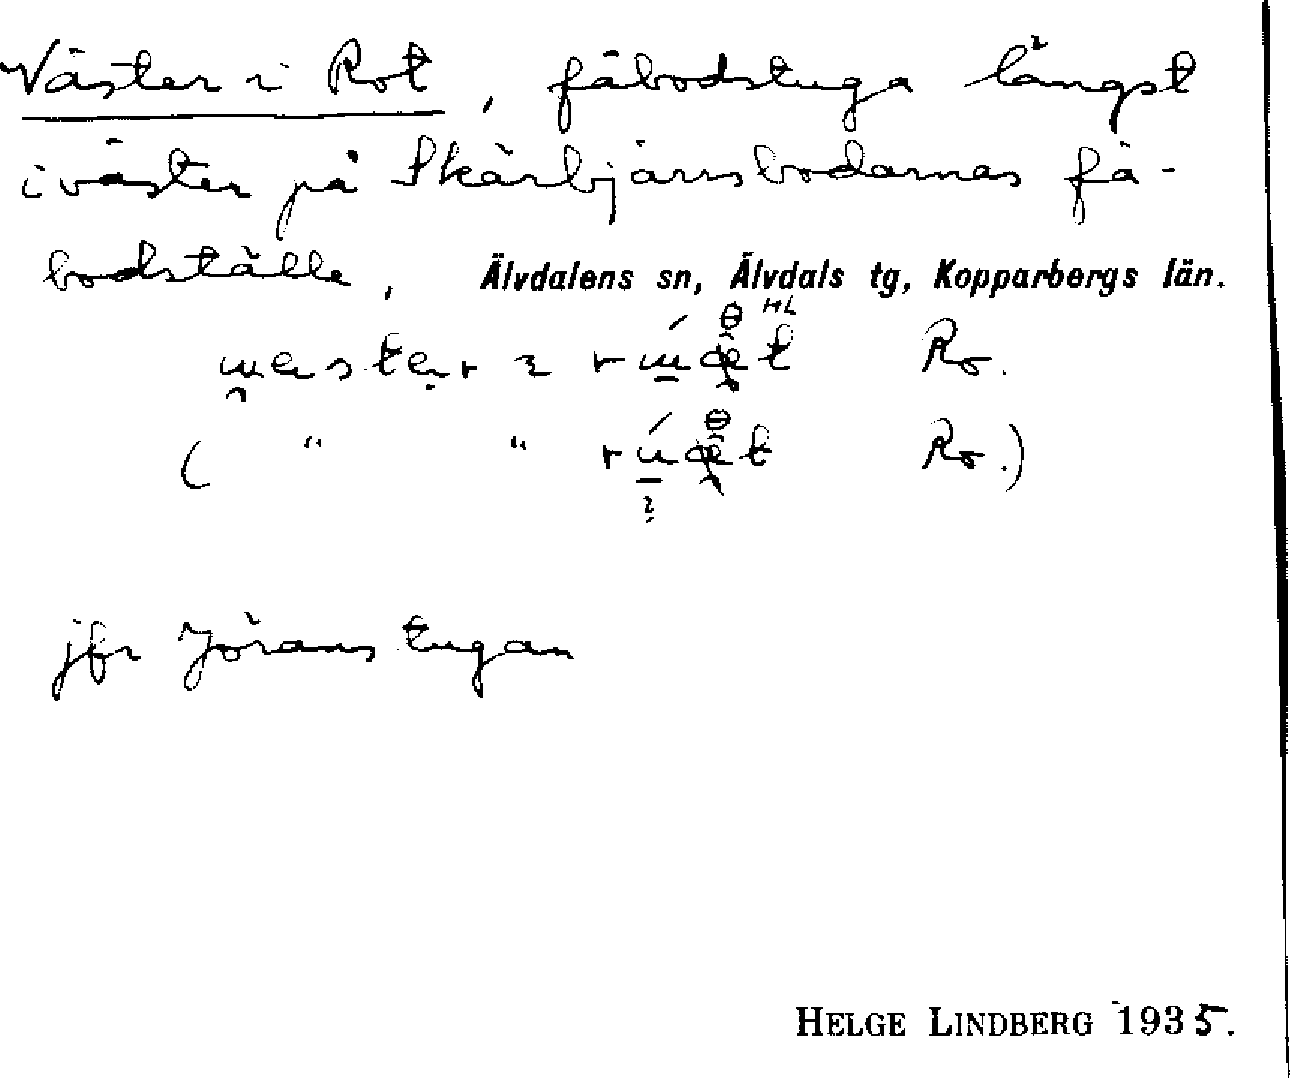 Väster i Rot, fäbodstuga längst
i väster på Skärbjärnsbodarnas fä-
bodställe, Älvdalens sn, Älvdals tg, Kopparbergs län.
HL
Ro.
( " " Ro.)
jfr Jöranstugan
HELGE LINDBERG 1935.